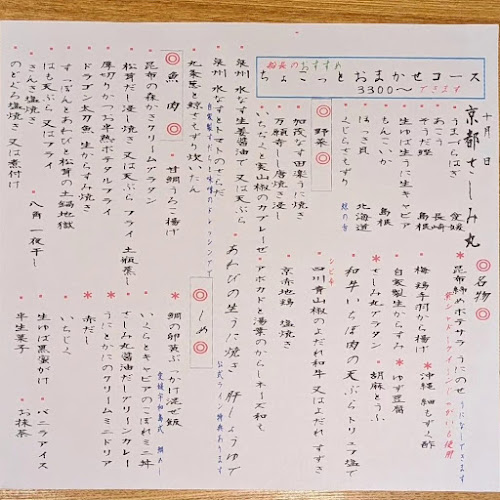 船長のおすすめ
ちょこっとおまかせコース
3300〜できます
十月 日
京都さしみ丸
うまづらはぎ 愛媛
あこう 長崎
そうだ鰹 島根
生ゆば生うに生キャビア
もんこいか 島根
はっさ貝 北海道
くじらさえずり
◎名物◎
*昆布締めポテサラ うにのせ
*沖縄 細もずく酢
梅鶏手羽から揚げ
自家製生からすみ
*ゆず豆腐
*さしみ丸グラタン
・胡麻とうふ
和牛いちぼ肉の天ぷらトリュフ塩で
四川青山椒のよだれ和牛 又は よだれすずき
◎野菜◎
加茂なす田楽うに焼き
万願寺しし唐焼き浸し
いちじくと実山椒のカプレーゼ
アボカドと湯葉のからしマヨネーズ和え
京赤地鶏 塩焼き
泉州 水なす生姜醤油で 又は 天ぷら
泉州 水なすとトマトのせらだ
丸茶葱と鯨さえずり炊いたん
あわびの生うに焼き 肝しょうゆで
◎魚 肉◎
昆布の森がきクリームグラタン
甘鯛うろこ揚げ
松茸だし浸し焼き 又は 天ぷら フライ 土瓶蒸し
厚切りかつお半熟ポテタルフライ
ドラゴン太刀魚 生からすみ焼き
すっぽんとあわびと松茸の土鍋地獄
はも天ぷら 又は フライ
きんき塩焼き
八角 一夜干し
のどぐろ塩焼き 又は 煮付け
◎しめ◎
鯛の卵黄ぶっかけ混ぜ飯
愛媛宇和島式 鯛めし
いくらとキャビアのこぼれミニ丼
*さしみ丸醤油だしグリーンカレー
*うにとかにのクリームミニドリア
*赤だし
いちじく
生ゆば黒蜜がけ
・バニラアイス
半生菓子
・お抹茶